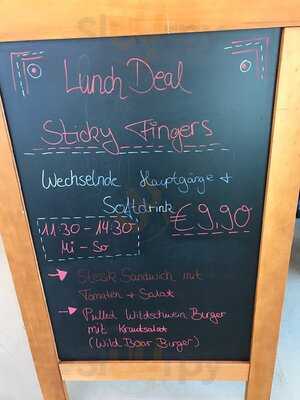 Lunch Deal
Sticky Fingers
Wechselnde Hauptgänge +
Softdrink
€ 9,90
11:30 - 14:30
Mi - So
→ Steak Sandwich mit
Tomaten + Salat
→ Pulled Wildschwein Burger
mit Krautsalat
(Wild Boar Burger)